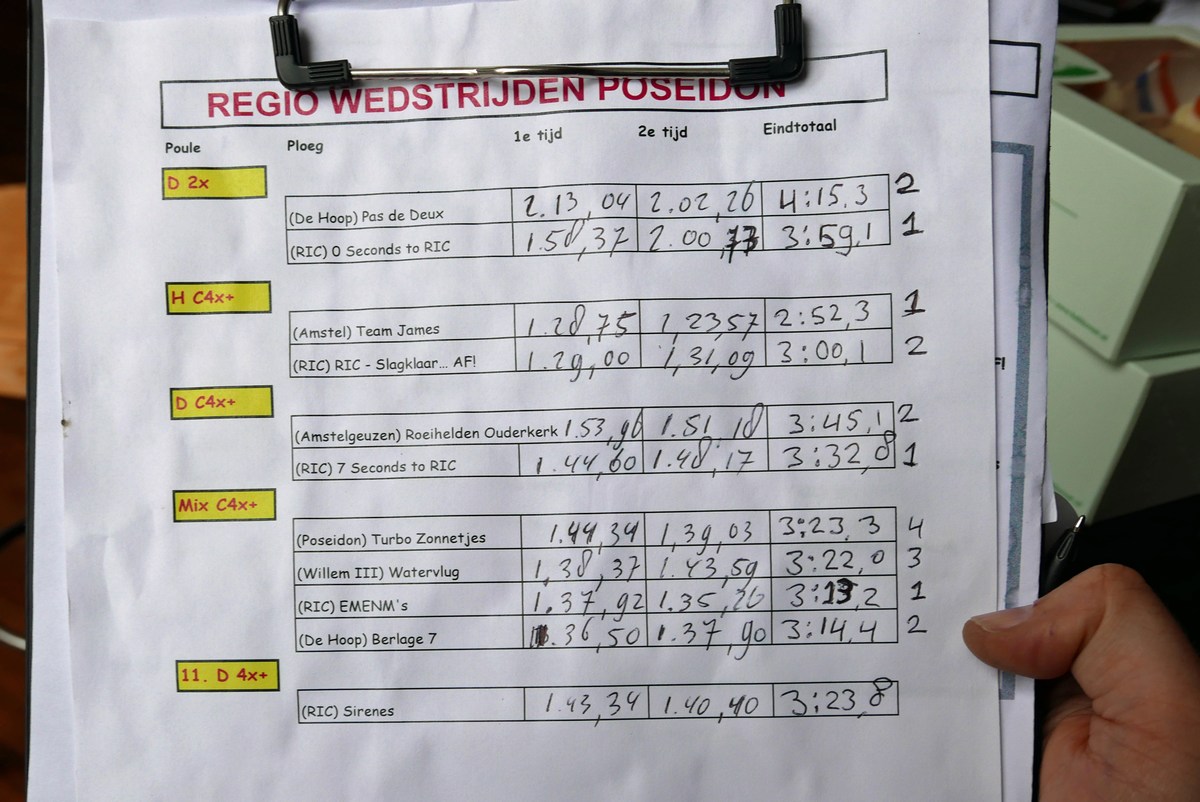 REGIO WEDSTRIJDEN POSEIDON
Poule Ploeg 1e tijd 2e tijd Eindtotaal
D 2x
(De Hoop) Pas de Deux 2.13,04 2.02,26 4:15.3 2
(RIC) 0 Seconds to RIC 1.58,37 2.00,73 3:59,1 1
H C4x+
(Amstel) Team James 1.28,75 1,23,57 2:52,3 1
(RIC) RIC - Slagklaar... AF! 1.29,00 1,31,09 3:00,1 2
D C4x+
(Amstelgeuzen) Roeihelden Ouderkerk 1.53,96 1.51,18 3:45,1 2
(RIC) 7 Seconds to RIC 1.44,60 1.48,17 3:32,8 1
Mix C4x+
(Poseidon) Turbo Zonnetjes 1.44,34 1,39,03 3:23,3 4
(Willem III) Watervlug 1,38,37 1.43,59 3:22,0 3
(RIC) EMENM's 1.37,92 1.35,26 3:13,2 1
(De Hoop) Berlage 7 1.36,50 1.37,90 3:14,4 2
11. D 4x+
(RIC) Sirenes 1.43,34 1.40,40 3:23,8